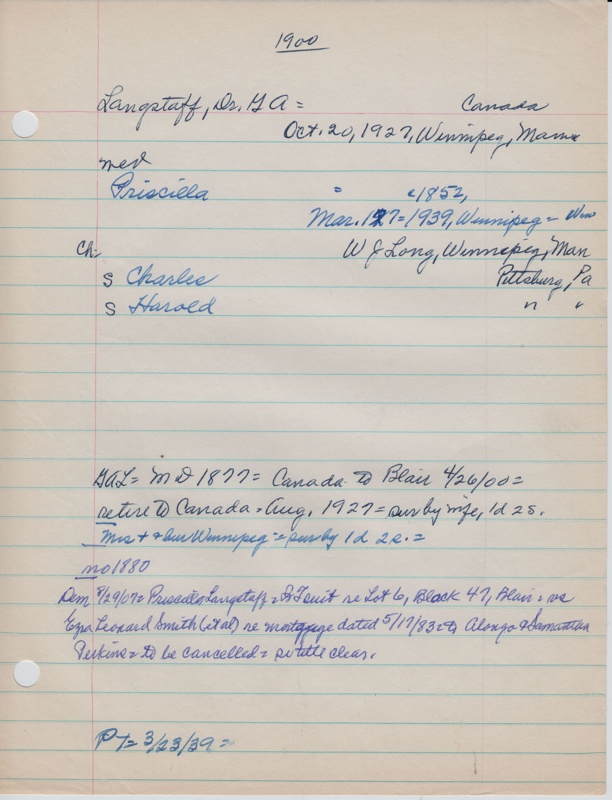 1900
Langstaff, Dr. G A = Canada
Oct. 20, 1927, Winnipeg,
med
Priscilla = c1852,
Mar. 1927=1939, Winnipeg =
Ch:
W J Long, Winnipeg, Man
S Charles Pittsburg, Pa
S Harold " "
GAL= MD 1877= Canada to Blair 4/26/00=
retire to Canada = Aug. 1927= sur by wife, 1d 2s.
Mrs + + bur Winnipeg = sur by 1d 2s. =
no 1880
Dem 3/29/07= Priscilla Langstaff = suit re Lot 6, Block 47, Blair = vs
Ezra Leonard Smith (et al) re mortgage dated 5/17/83 = to Alonzo & Samantha
Perkins = to be cancelled = so title clear.
PT= 3/23/39 =